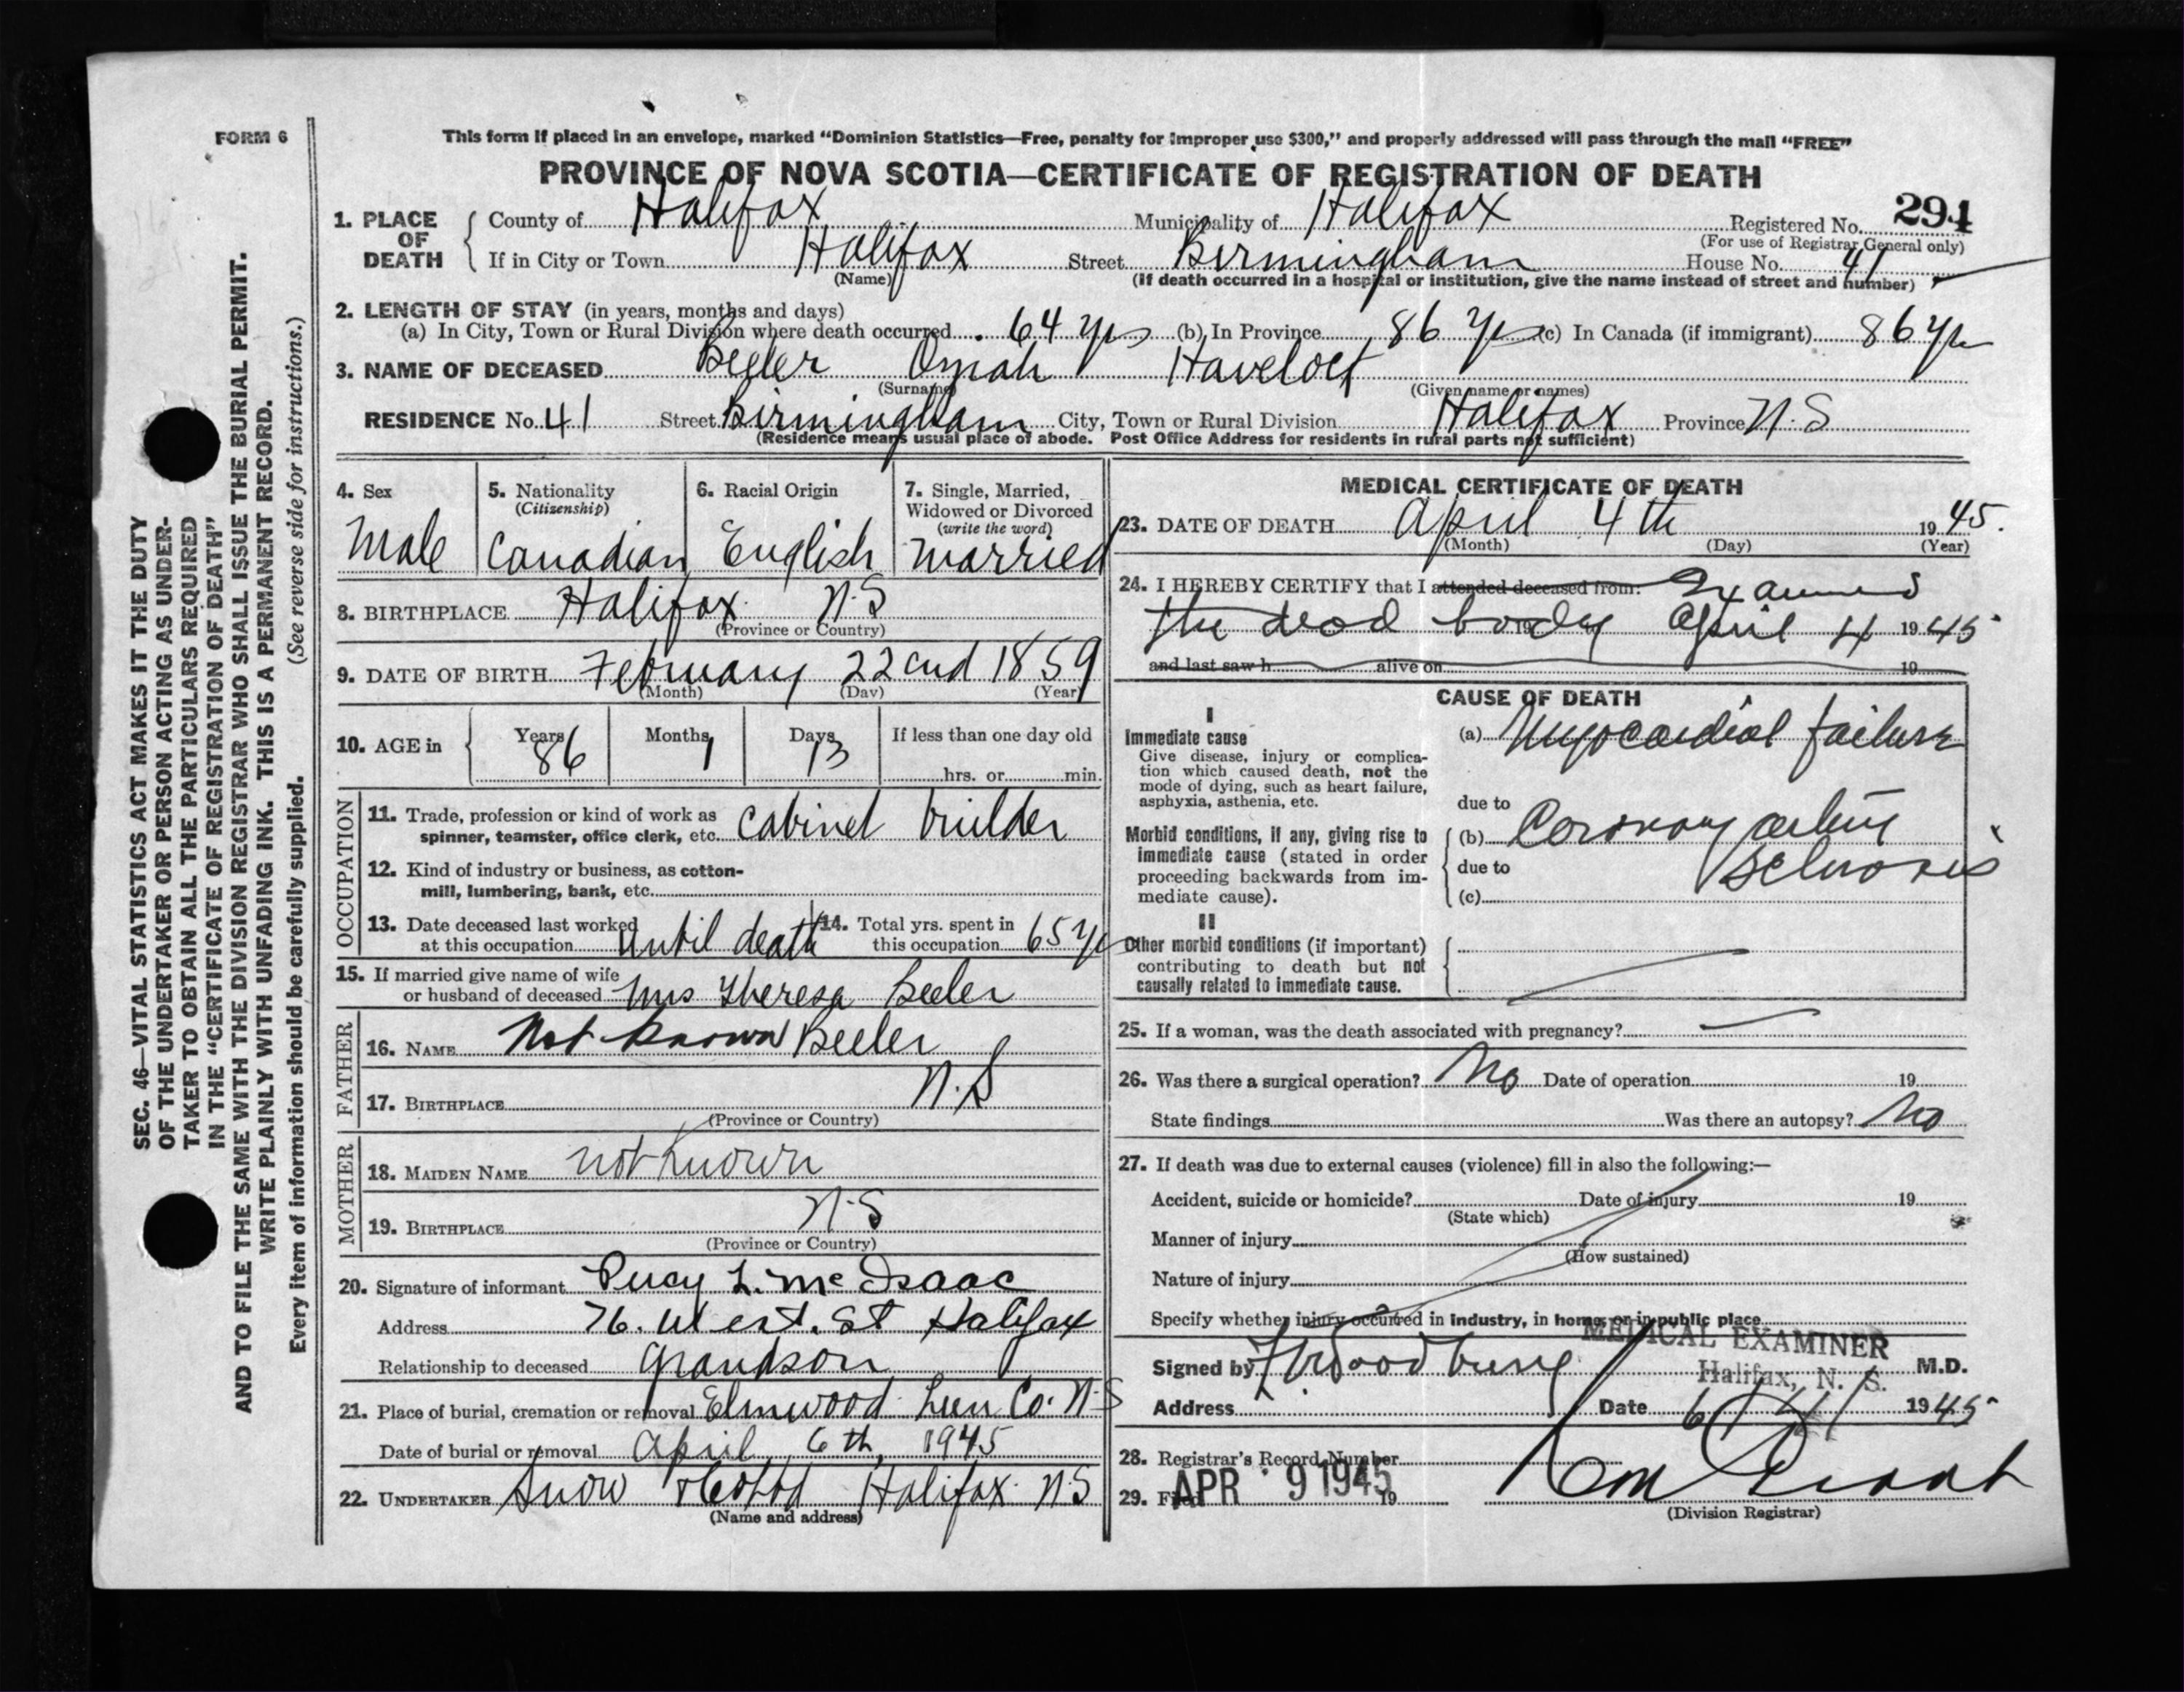 FORM 6
This form if placed in an envelope, marked “Dominion Statistics—Free, penalty for improper use $300,” and properly addressed will pass through the mail “FREE”
PROVINCE OF NOVA SCOTIA—CERTIFICATE OF REGISTRATION OF DEATH
1. PLACE OF DEATH { County of Halifax Municipality of Halifax Registered No. 294
(For use of Registrar General only)
If in City or Town Halifax Street Birmingham House No. 41
(Name) (If death occurred in a hospital or institution, give the name instead of street and number)
2. LENGTH OF STAY (in years, months and days)
(a) In City, Town or Rural Division where death occurred 64 yrs (b) In Province 86 yrs (c) In Canada (if immigrant) 86 yrs
3. NAME OF DECEASED Beeler Havelock
(Surname) (Given name or names)
RESIDENCE No. 41 Street Birmingham City, Town or Rural Division Halifax Province N.S
(Residence means usual place of abode. Post Office Address for residents in rural parts not sufficient)
4. Sex Male
5. Nationality (Citizenship) Canadian
6. Racial Origin English
7. Single, Married, Widowed or Divorced (write the word) Married
8. BIRTHPLACE Halifax N.S
(Province or Country)
9. DATE OF BIRTH February 22cnd 1859
(Month) (Day) (Year)
10. AGE in { Years 86 Months 1 Days 13 If less than one day old
hrs. or min.
OCCUPATION
11. Trade, profession or kind of work as
spinner, teamster, office clerk, etc. Cabinet builder
12. Kind of industry or business, as cotton-
mill, lumbering, bank, etc.
13. Date deceased last worked
at this occupation until death
14. Total yrs. spent in
this occupation 65 yrs
15. If married give name of wife
or husband of deceased Mrs Theresa Beeler
FATHER
16. NAME Not known Beeler
17. BIRTHPLACE N.S
(Province or Country)
MOTHER
18. MAIDEN NAME not known
19. BIRTHPLACE N.S
(Province or Country)
20. Signature of informant L. McIsaac
Address 76. West. St Halifax
Relationship to deceased grandson
21. Place of burial, cremation or removal Elmwood Lun Co. N.S
Date of burial or removal April 6th, 1945
22. UNDERTAKER Snow Halifax N.S
(Name and address)
MEDICAL CERTIFICATE OF DEATH
23. DATE OF DEATH April 4th 1945.
(Month) (Day) (Year)
24. I HEREBY CERTIFY that I attended deceased from: Examined
the dead body April 4 1945
and last saw h alive on 19
CAUSE OF DEATH
I
Immediate cause
Give disease, injury or complica-
tion which caused death, not the
mode of dying, such as heart failure,
asphyxia, asthenia, etc.
(a) Myocardial failure
due to
Morbid conditions, if any, giving rise to
immediate cause (stated in order
proceeding backwards from im-
mediate cause).
(b) Coronary artery
due to sclerosis
(c)
II
Other morbid conditions (if important)
contributing to death but not
causally related to immediate cause.
25. If a woman, was the death associated with pregnancy?
26. Was there a surgical operation? No Date of operation 19
State findings Was there an autopsy? No
27. If death was due to external causes (violence) fill in also the following:—
Accident, suicide or homicide? Date of injury 19
(State which)
Manner of injury
(How sustained)
Nature of injury
Specify whether injury occurred in industry, in home, or in public place
MEDICAL EXAMINER
Signed by Woodbury Halifax, N. S. M.D.
Address Date 6/4/ 1945
28. Registrar's Record Number
29. Filed APR 9 1945 19
(Division Registrar)
SEC. 46—VITAL STATISTICS ACT MAKES IT THE DUTY
OF THE UNDERTAKER OR PERSON ACTING AS UNDER-
TAKER TO OBTAIN ALL THE PARTICULARS REQUIRED
IN THE “CERTIFICATE OF REGISTRATION OF DEATH”
AND TO FILE THE SAME WITH THE DIVISION REGISTRAR WHO SHALL ISSUE THE BURIAL PERMIT.
WRITE PLAINLY WITH UNFADING INK. THIS IS A PERMANENT RECORD.
Every item of information should be carefully supplied. (See reverse side for instructions.)